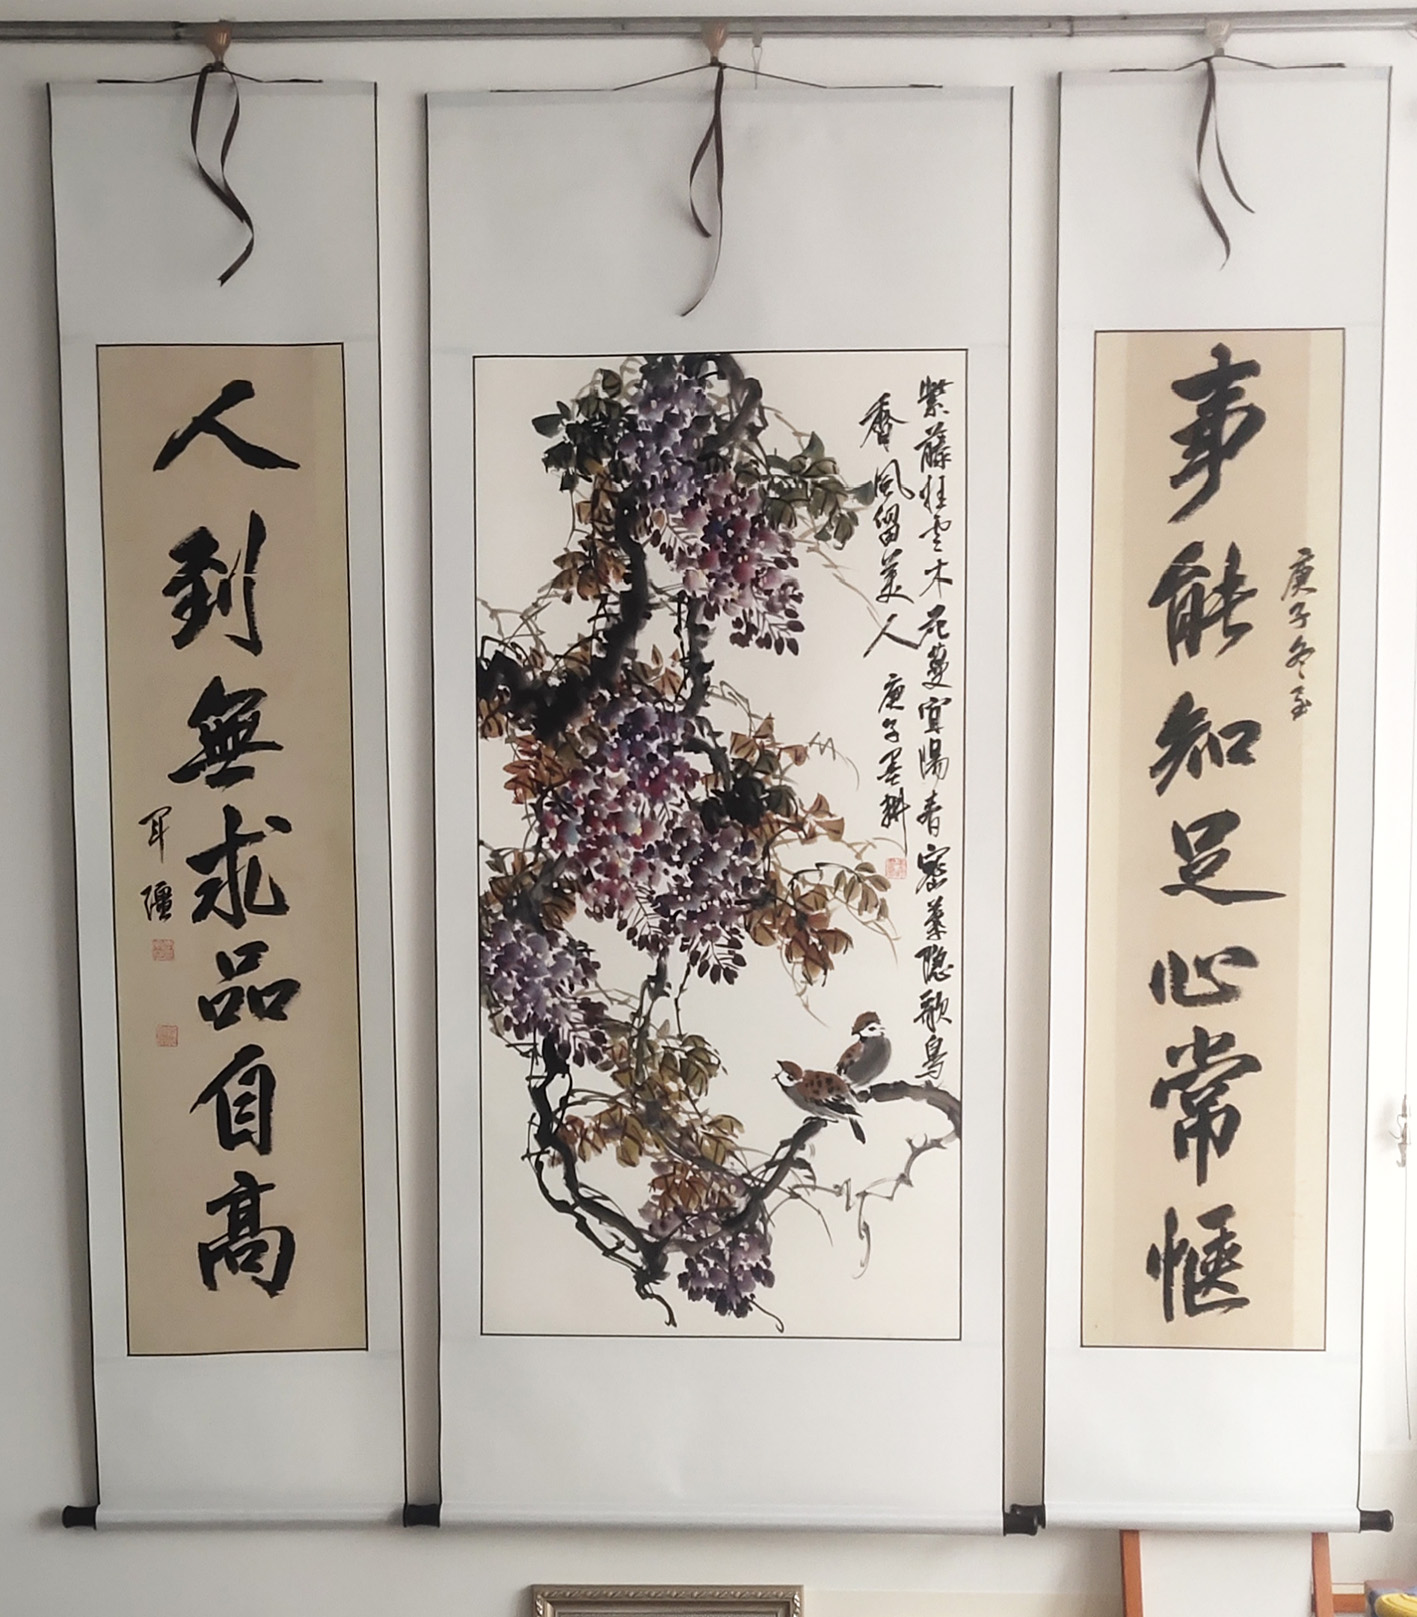 事能知足心常惬
庚子冬至
紫藤挂雲木花蔓宜陽春密葉隐歌鳥
香風留美人
庚子墨斛
人到無求品自高
耳疆